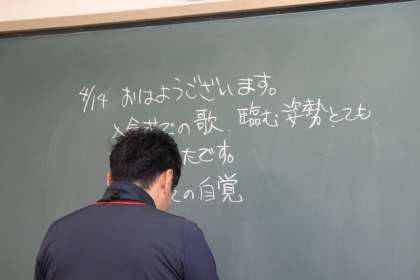 4/14 おはようございます。
での歌、臨む姿勢とても
たです。
ての自覚